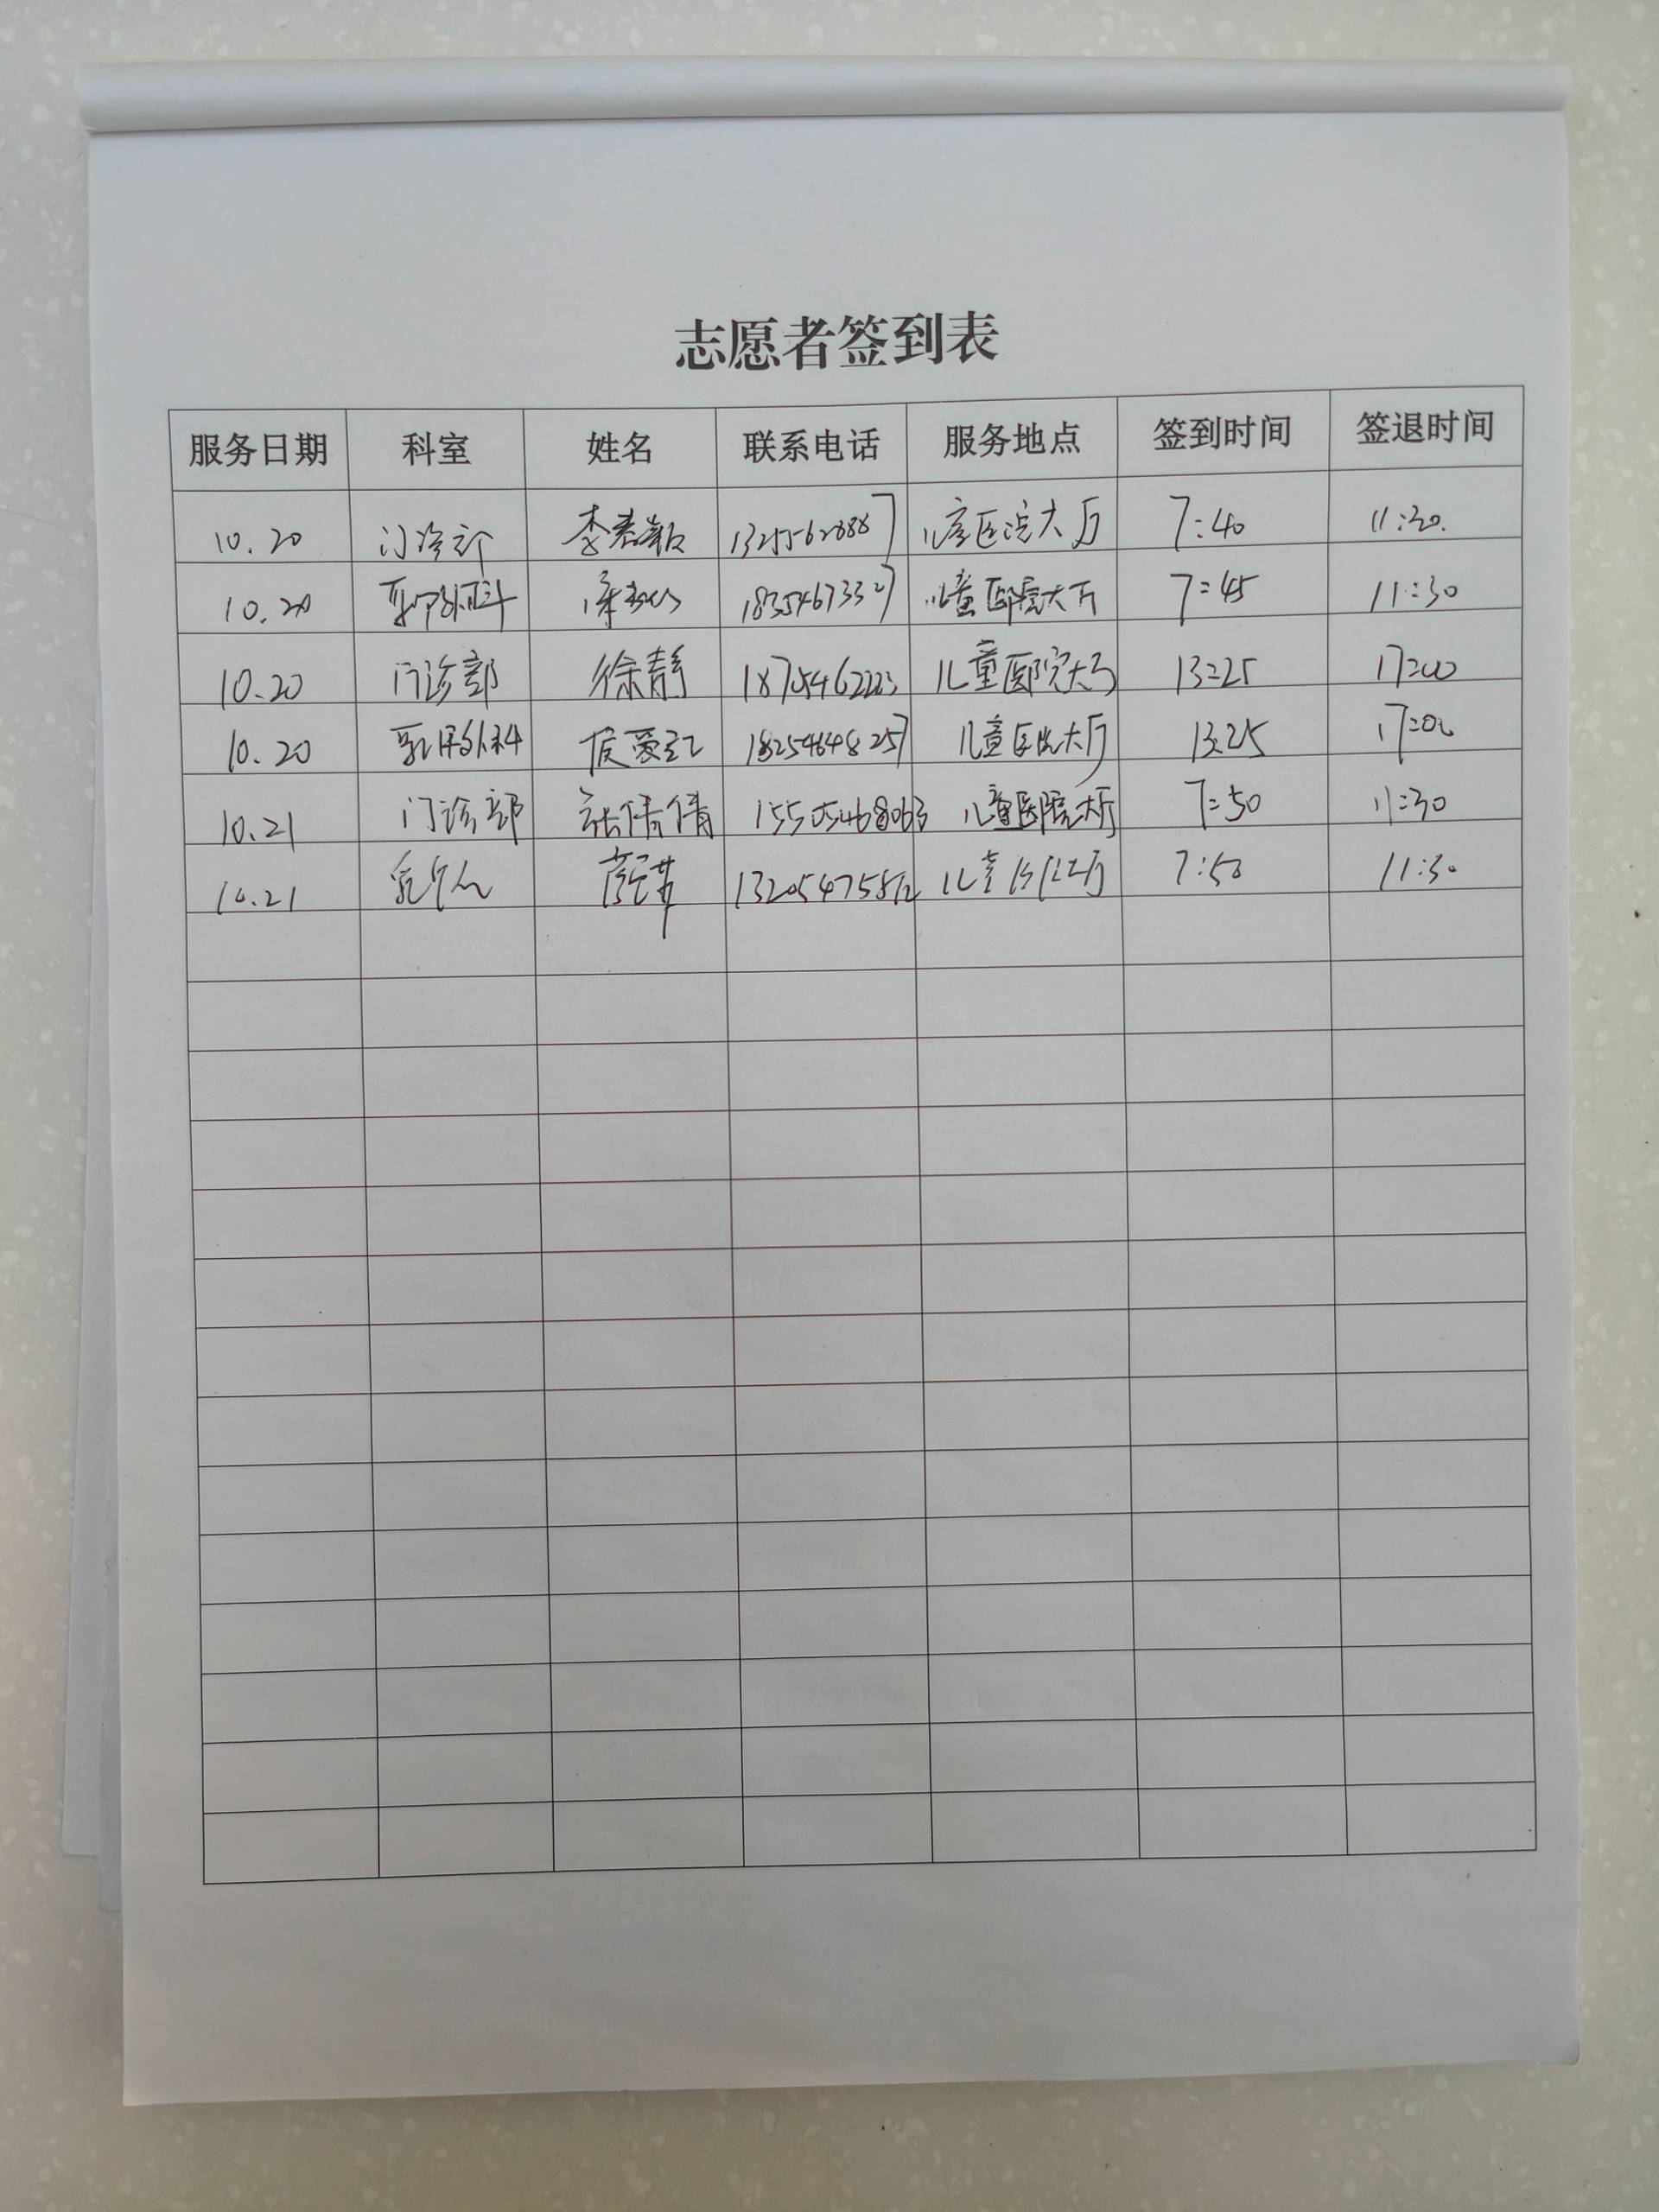 志愿者签到表
服务日期 科室 姓名 联系电话 服务地点 签到时间 签退时间
10.20 门诊部 李 儿童医院大厅 7:40 11:30
10.20 乳甲外科 18354673327 儿童医院大厅 7:45 11:30
10.20 门诊部 徐静 18754622223 儿童医院大厅 13:25 17:00
10.20 乳甲外科 侯爱红 18254648257 儿童医院大厅 13:25 17:00
10.21 门诊部 张倩倩 15505468063 儿童医院大厅 7:50 11:30
10.21 儿童 7:50 11:30